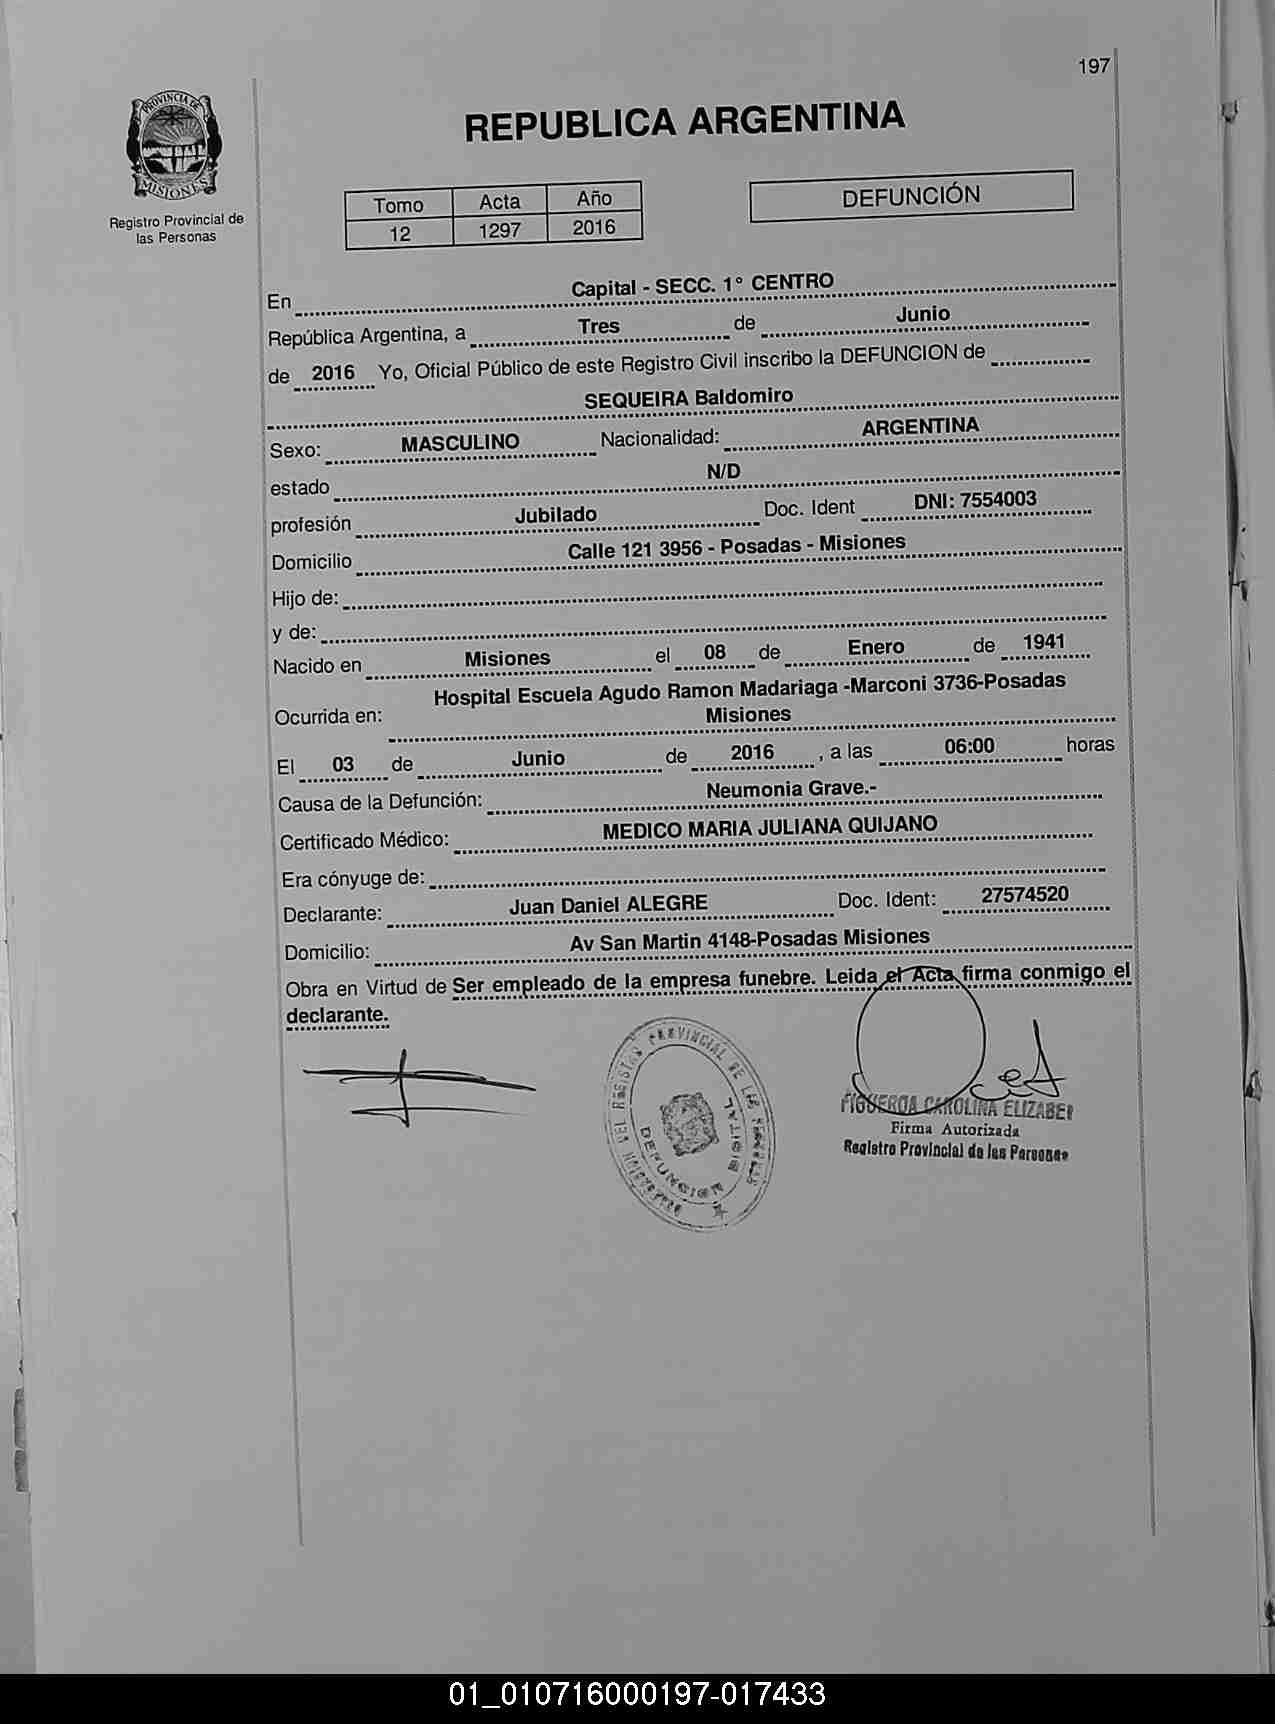 197
PROVINCIA DE
MISIONES
Registro Provincial de
las Personas
REPUBLICA ARGENTINA
Tomo Acta Año
12 1297 2016
DEFUNCIÓN
En Capital - SECC. 1° CENTRO
República Argentina, a Tres de Junio
de 2016 Yo, Oficial Público de este Registro Civil inscribo la DEFUNCION de
SEQUEIRA Baldomiro
Sexo: MASCULINO Nacionalidad: ARGENTINA
estado N/D
profesión Jubilado Doc. Ident DNI: 7554003
Domicilio Calle 121 3956 - Posadas - Misiones
Hijo de:
y de:
Nacido en Misiones el 08 de Enero de 1941
Hospital Escuela Agudo Ramon Madariaga -Marconi 3736-Posadas
Ocurrida en: Misiones
El 03 de Junio de 2016 , a las 06:00 horas
Causa de la Defunción: Neumonia Grave.-
Certificado Médico: MEDICO MARIA JULIANA QUIJANO
Era cónyuge de:
Declarante: Juan Daniel ALEGRE Doc. Ident: 27574520
Domicilio: Av San Martin 4148-Posadas Misiones
Obra en Virtud de Ser empleado de la empresa funebre. Leida el Acta firma conmigo el
declarante.
PROVINCIAL DE LAS
DEFUNCION
FIGUEROA CAROLINA ELIZABET
Firma Autorizada
Registro Provincial de las Personas
01_010716000197-017433